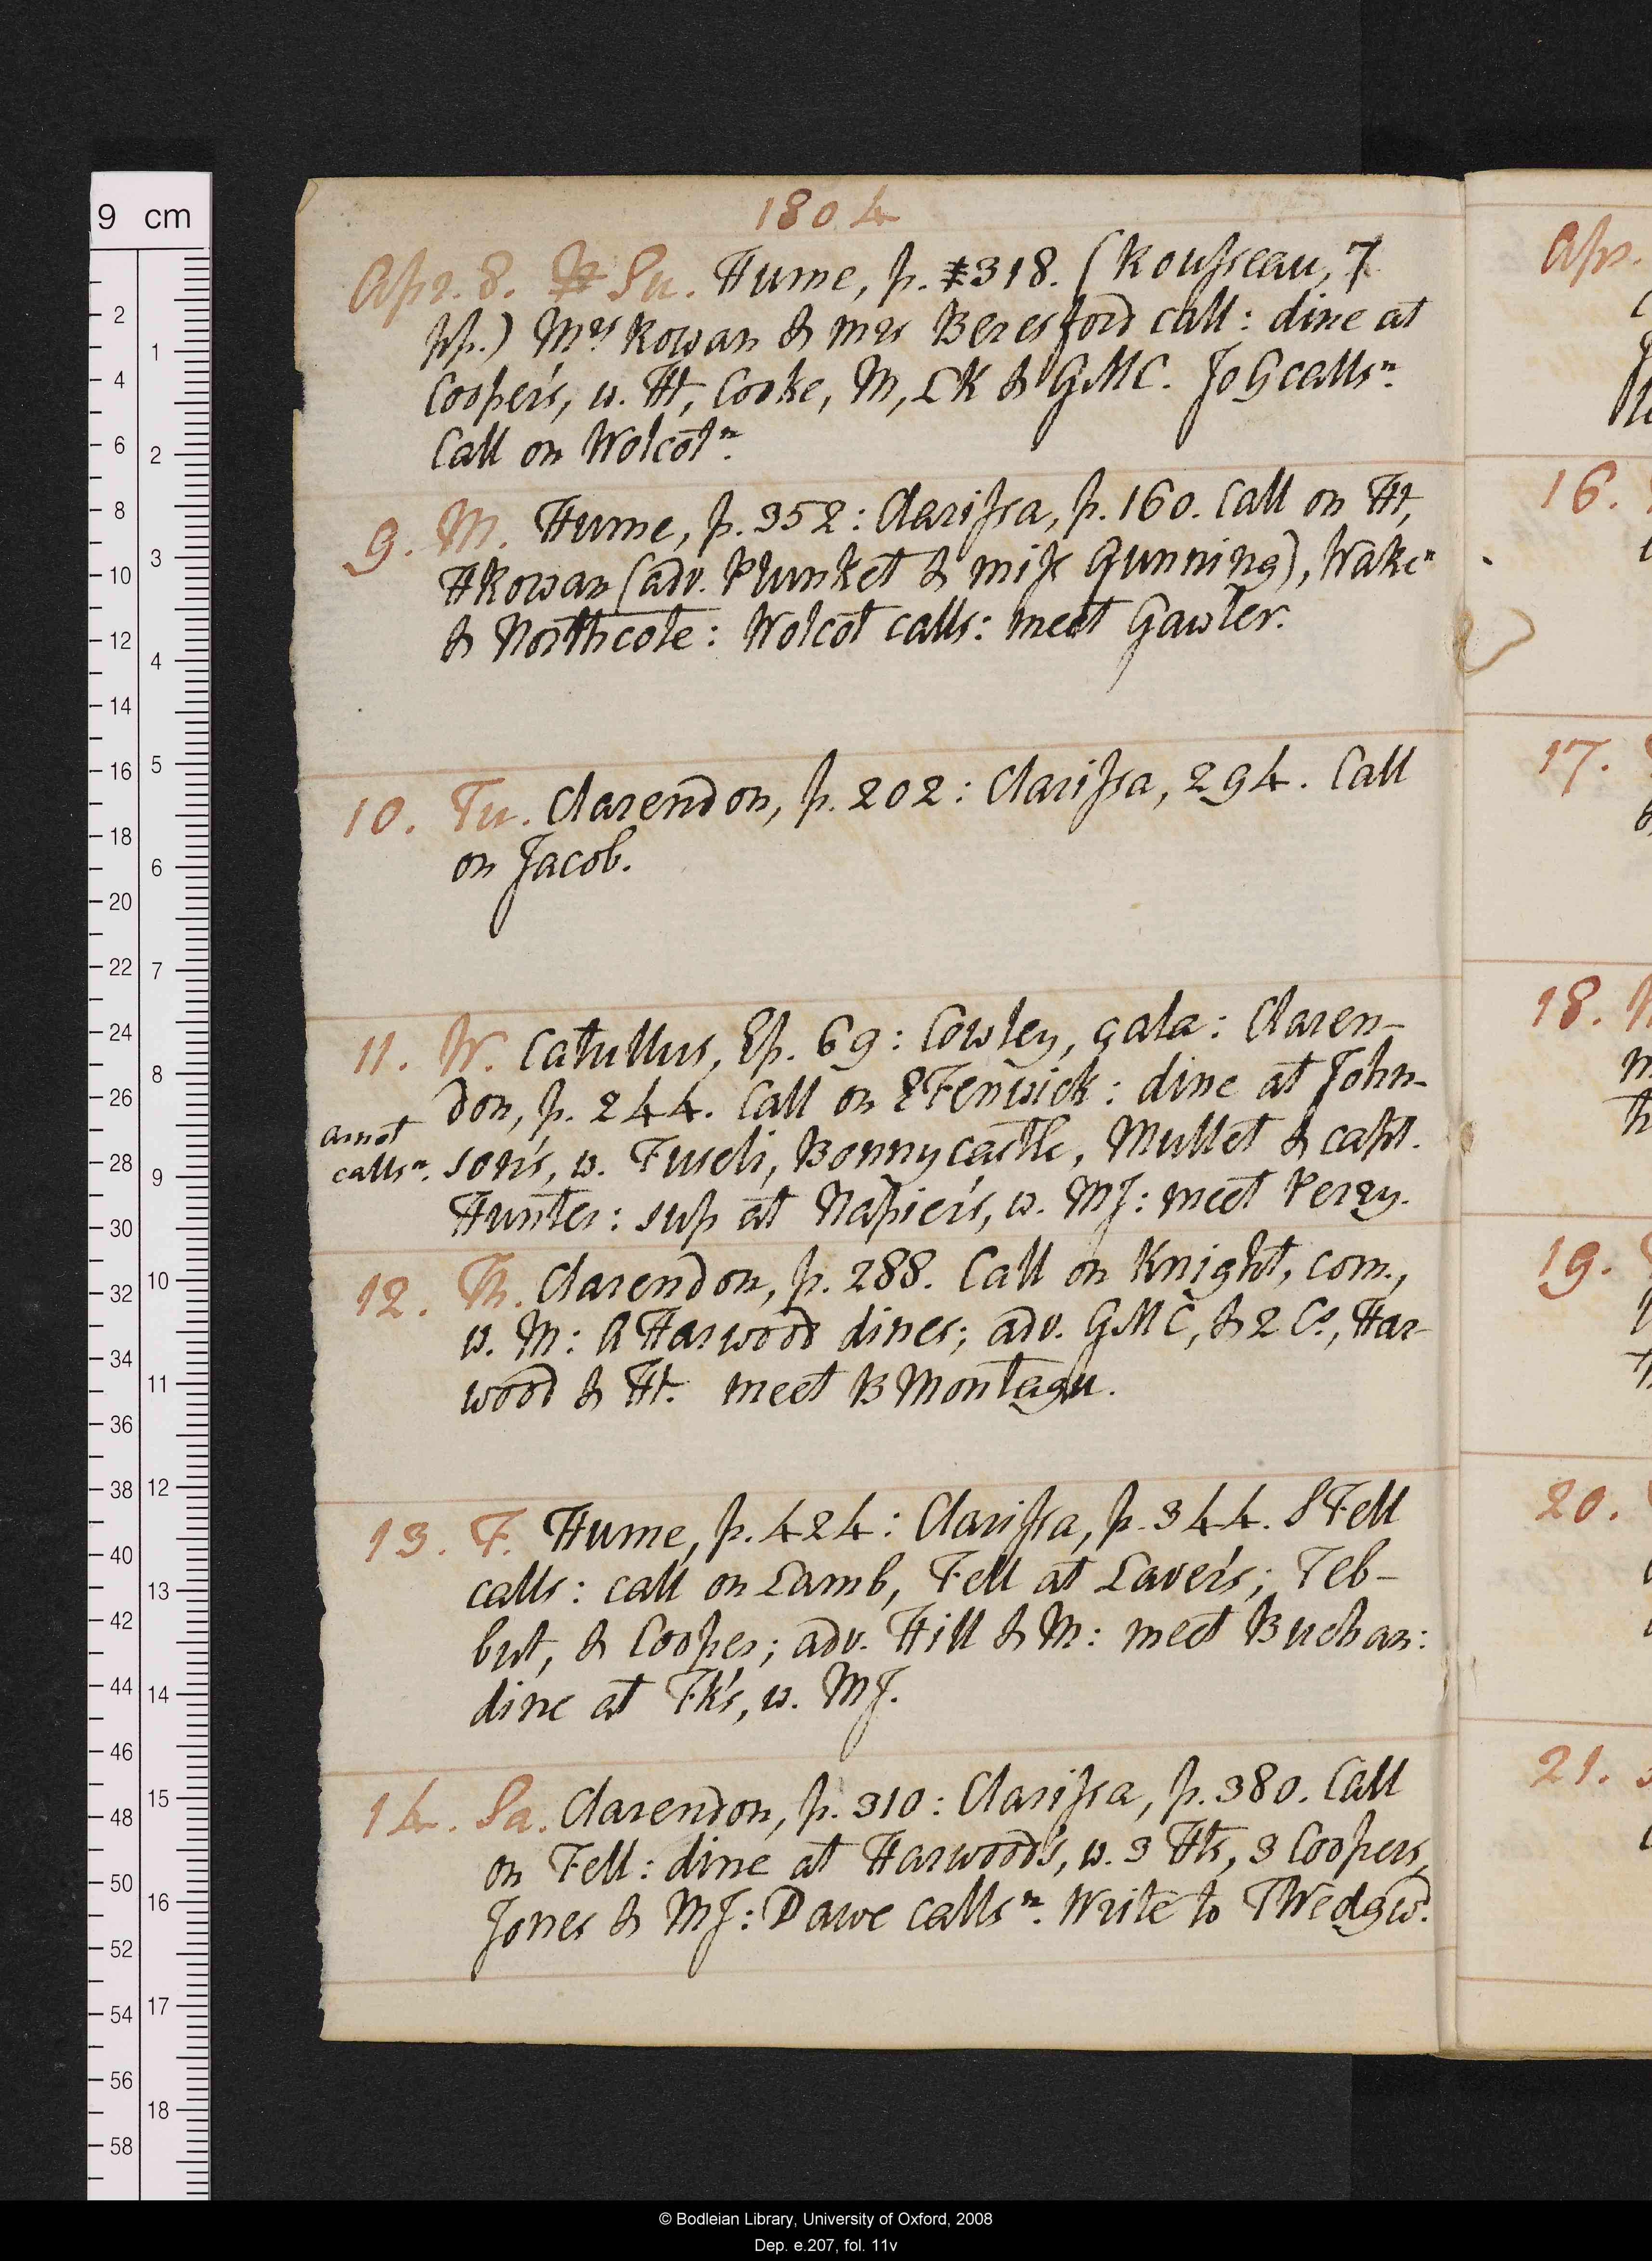 1804
Apr. 8. Su. Hume, p. 318. (Rousseau, 7
pp.) Mrs Rowan & mrs Beresford call: dine at
Cooper's, w. Ht, Cooke, M, LK & GMC. JoGcallsn.
Call on Wolcotn.
9. M. Hume, p. 352: Clarissa, p. 160. Call on Ht,
HRowan (adv. Plunket & miss Gunning), Waken
& Northcote: Wolcot calls: meet Gawler.
10. Tu. Clarendon, p. 202: Clarissa, 294. Call
on Jacob.
11. W. Catullus, Ep. 69: Cowley, çala: Claren-
don, p. 244. Call on EFenwick: dine at John-
arnot
callsn. son's, w. Fuseli, Bonnycastle, Mullet & capt.
Hunter: sup at Napier's, w. MJ: meet Perry.
12. Th. Clarendon, p. 288. Call on Knight, com.,
w. M: AHarwood dines; adv. GMC, & 2 Co, Har-
wood & Ht. meet BMontagu.
13. F. Hume, p. 424: Clarissa, p. 344. SFell
calls: call on Lamb, Fell at Laver's; Teb-
but, & Cooper; adv. Hill & M: meet Buchan:
dine at Fk's, w. MJ.
14. Sa. Clarendon, p. 310: Clarissa, p. 380. Call
on Fell: dine at Harwood's, w. 3 Hts, 3 Coopers,
Jones & MJ: Dawe callsn. Write to TWedgwd.
Apr.
16.
17.
18.
19.
20.
21.
9 cm
2
4
6
8
10
12
14
16
18
20
22
24
26
28
30
32
34
36
38
40
42
44
46
48
50
52
54
56
58
1
2
3
4
5
6
7
8
9
10
11
12
13
14
15
16
17
18
© Bodleian Library, University of Oxford, 2008
Dep. e.207, fol. 11v